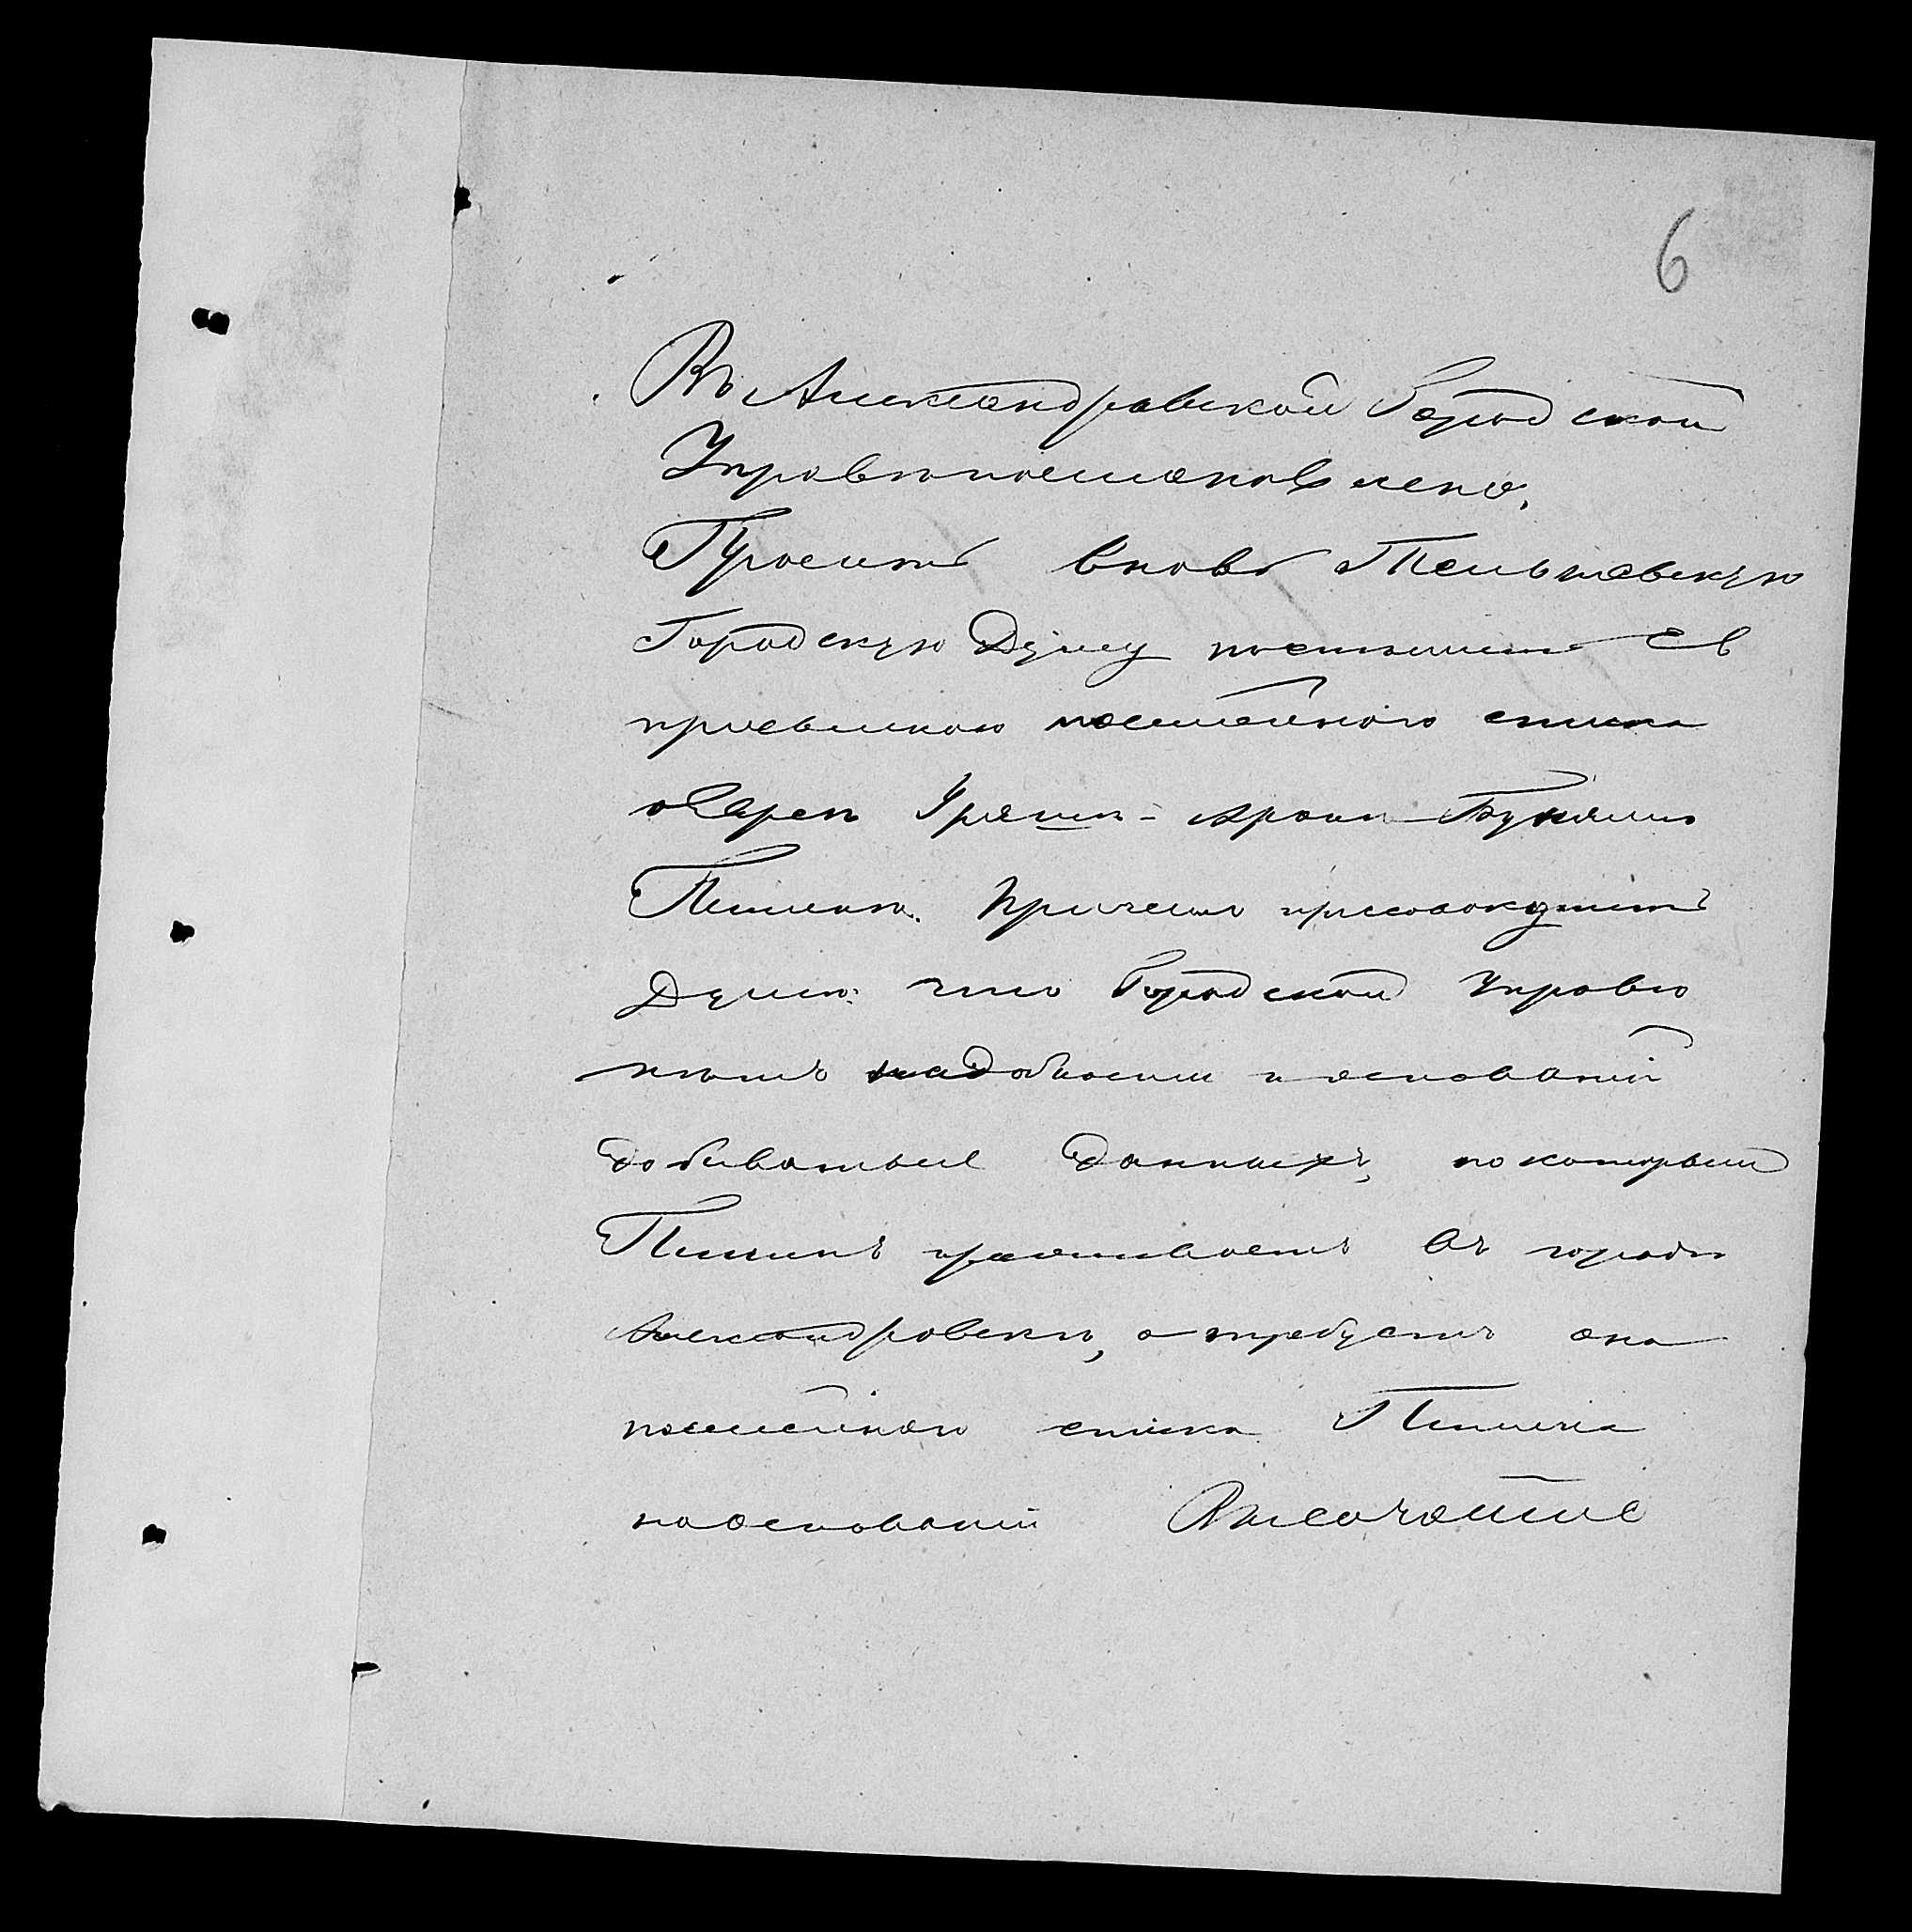 6
Въ Александровской Городской
Управѣ постановлено,
Просить вновь Тельшевскую
Городскую Думу поспѣшить ея
присылкою посемейнаго списка
еврея - Арона
Пимена. При чемъ присовокупить
Думѣ что Городской Управѣ
нѣтъ надобности и основаній
добиваться данныхъ, по которымъ
Пименъ проживаетъ въ городѣ
Александровскѣ, а требуетъ она
посемейнаго списка Пимена
на основаніи Высочайше